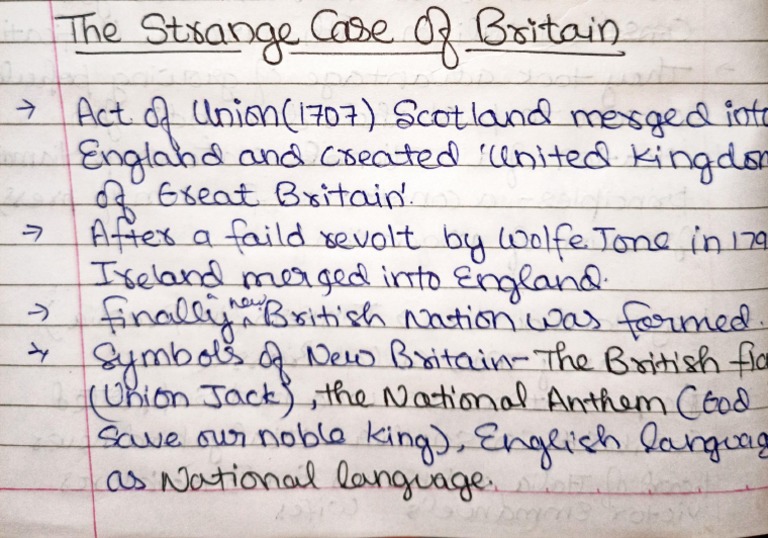 The Strange Case Of Britain
→ Act of Union(1707) Scotland merged into
England and created 'United Kingdom
of Great Britain'.
→ After a faild revolt by Wolfe Tone in 179
Ireland merged into England.
→ finally new British Nation was formed.
→ Symbols of New Britain- The British fla
(Union Jack), the National Anthem (God
Save our noble king), English languag
as National language.